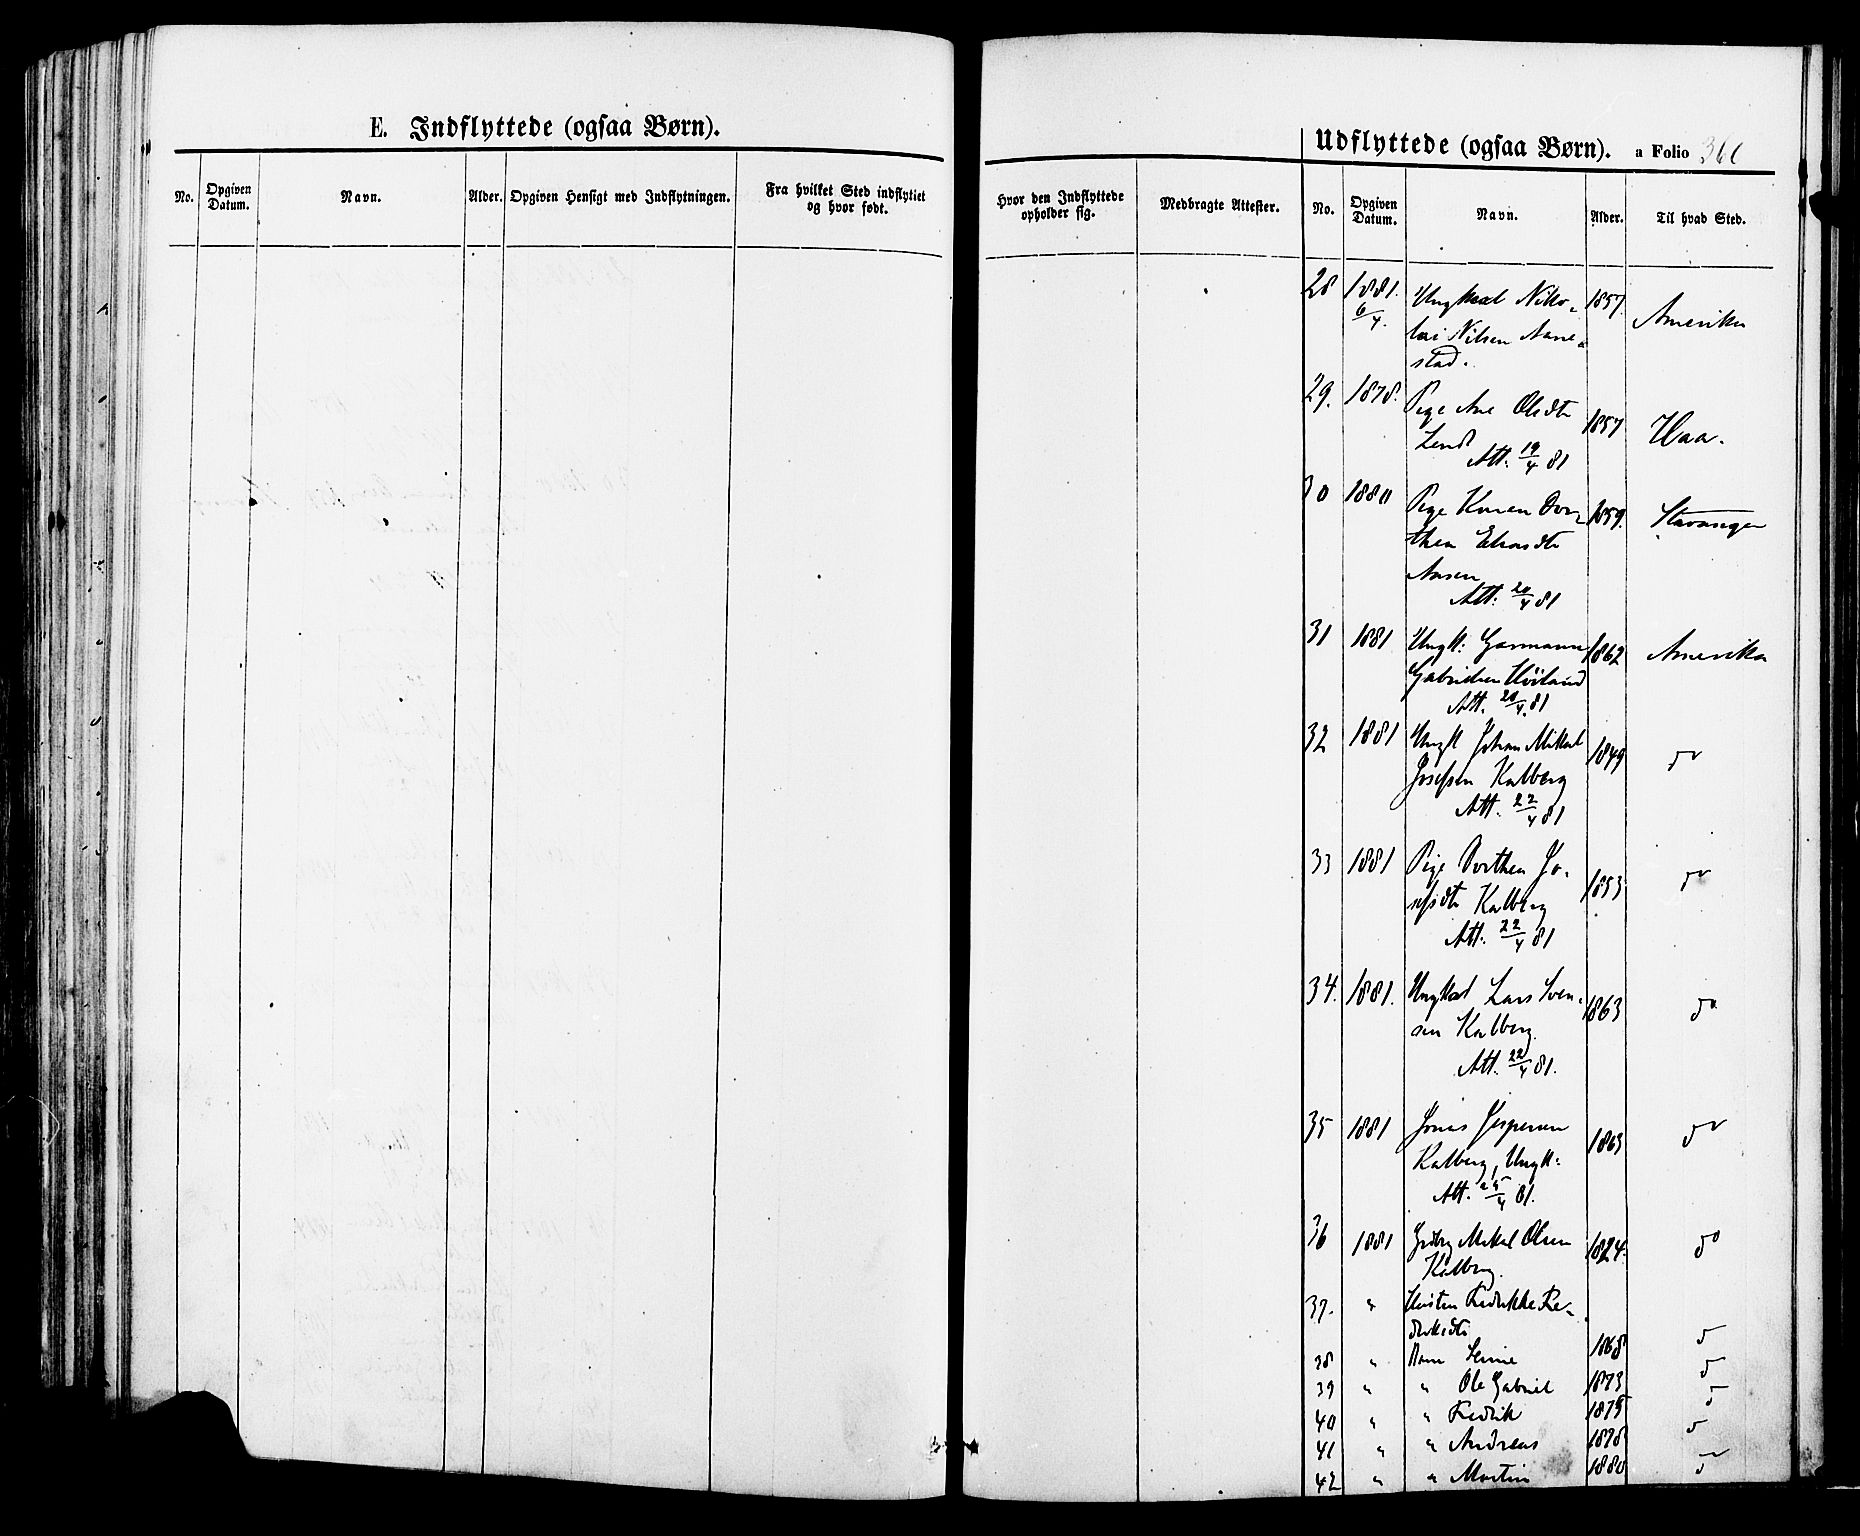 E. Indflyttede (ogsaa Børn).
No.
Opgiven Datum.
Navn.
Alder.
Opgiven Hensigt med Indflytningen.
Fra hvilket Sted indflyttet og hvor født.
Hvor den Indflyttede opholder sig.
Medbragte Attester.
Udflyttede (ogsaa Børn). a Folio
No.
Opgiven Datum.
Navn.
Alder.
Til hvad Sted.
28 1881. Ungkarl Niko- 1857. Amerika
6/4. lai Nilsen Aane-
stad.
29. 1878. Pige Ane Olsdtr 1857 Haa.
Lende
Att: 19/4 81
30 1880 Pige Karen Dor- 1859. Stavanger
thea
Aasen
Att: 20/4 81
31 1881 Ungk: Garmann 1862 Amerika
Gabrielsen Høiland
Att. 20/4. 81
32 1881 Ungk Johan Mikal 1849 do
Josefsen Kalberg
Att. 22/4 81
33 1881 Pige Dorthea Jo- 1853 do
sefsdtr Kalberg
Att. 22/4 81
34. 1881. Ungkarl Lars Sven- 1863 do
sen Kalberg.
Att. 22/4 81.
35 1881 Jonas Jespersen 1863 do
Kalberg, Ungk:
Att. 25/4 81.
36 1881 Grdbr Mikal Olsen 1824. do
Kalberg.
37. " Hustru Fredrikke Fre-
driksdtr
38 " Barn Lenine 1868 do
39 " " Ole Gabriel 1873 do
40 " " Fredrik 1875 do
41 " " Andreas 1878 do
42 " " Martin 1880 do